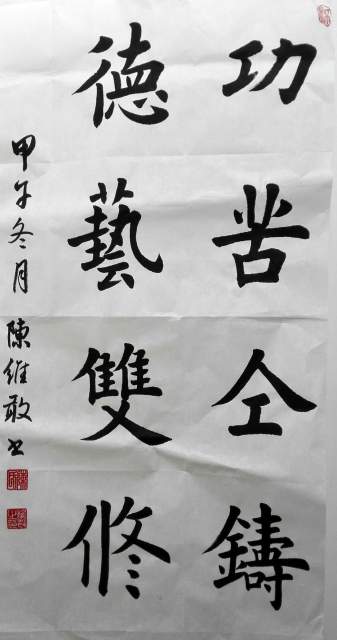 功苦仝鑄
德藝雙修
甲午冬月 陳維敢书